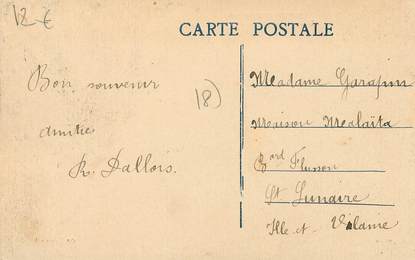 12 €
CARTE POSTALE
Bon souvenir
18)
amitiés
R. Dallois.
Madame Garapin
Maison Malaïta
Bard
St Lunaire
Ille et Vilaine